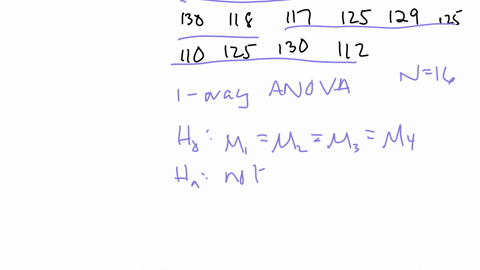 130 118 117 125 129 125
110 125 130 112
1-way ANOVA N=16
H₀: μ₁ = μ₂ = μ₃ = μ₄
Hₐ: not